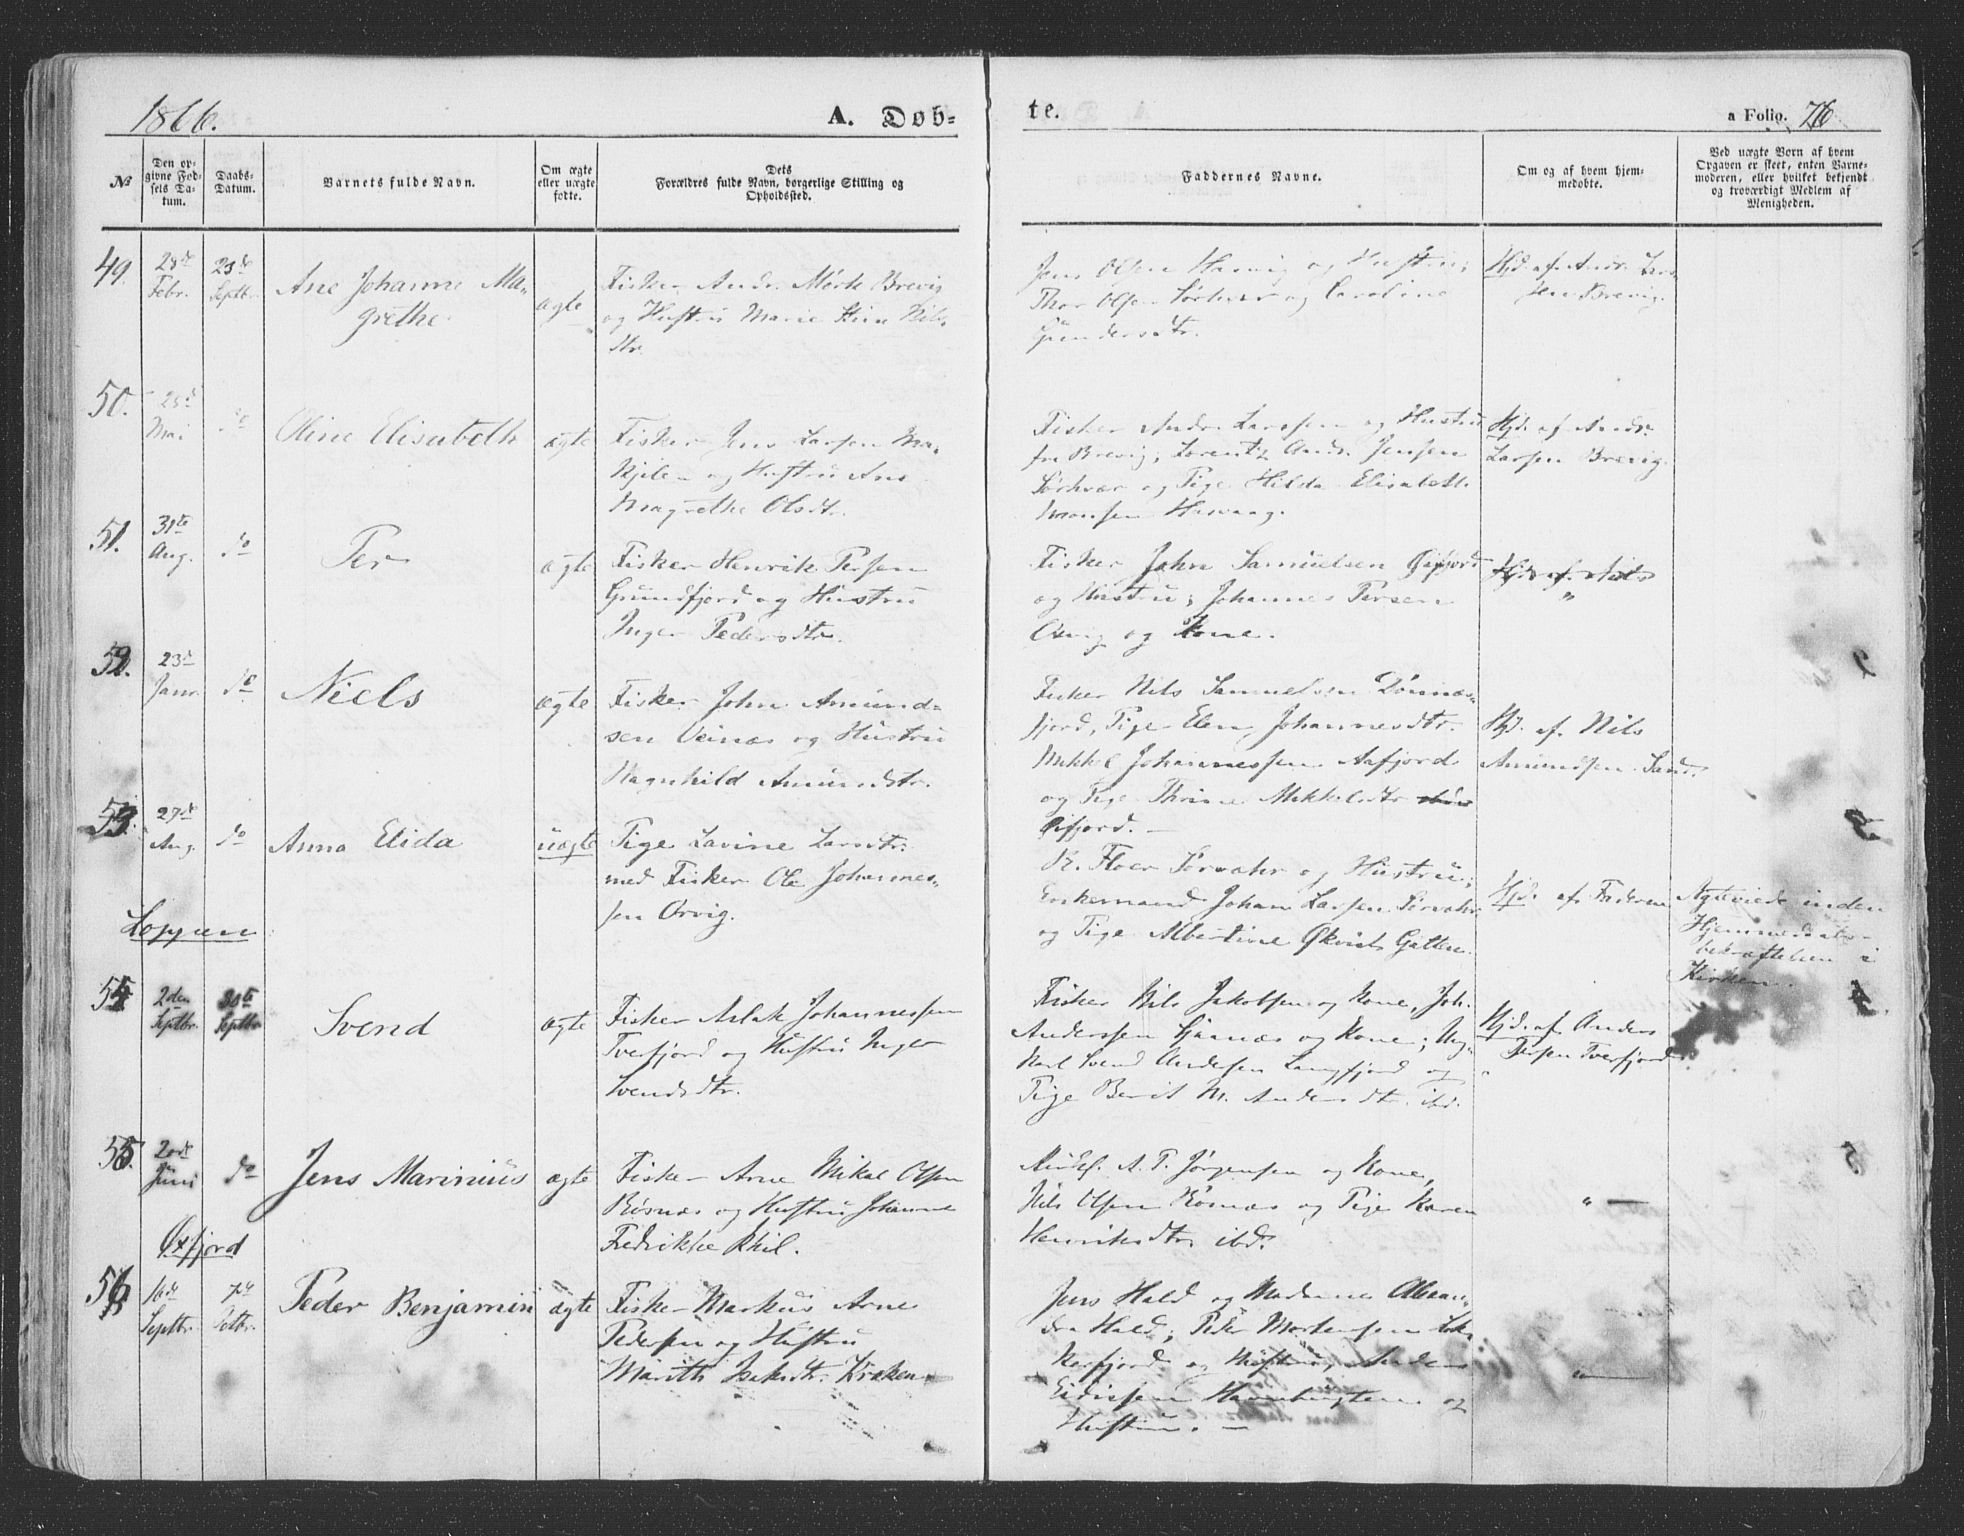 1866.
A. Døb-
te.
a Folio. 76
No
Den op-
givne Fød-
sels Da-
tum.
Daabs-
Datum.
Barnets fulde Navn.
Om ægte
eller uægte
fødte.
Dets
Forældres fulde Navn, borgerlige Stilling og
Opholdssted.
Faddernes Navne.
Om og af hvem hjem-
medøbte.
Ved uægte Børn af hvem
Opgaven er skeet, enten Barne-
moderen, eller hvilket bekjendt
og troværdigt Medlem af
Menigheden.
49.
Febr.
23de
Septbr.
Ane Johanne Ma-
grethe
ægte
Fisker Andr. Mørk Brevig
og Hustru Marie Stine Nils-
dtr.
Jens Olsen Hasvig og Hustru;
Thor Olsen Sørhvær og Caroline
Gundersdtr.
Hjd. af Andr. Lar-
sen Brevig.
50.
25d
Mai
do
Oline Elisabeth
ægte
Fisker Jens Larsen
og Hustru Ane
Magrethe Olsdtr.
Fisker Andr. Larssen og Hustru
fra Brevig; Lorentz Andr. Jensen
Sørhvær og Pige Hilda Elisabeth
Monsen Hasvaag.
Hjd. af Andr.
Larsen Brevig.
51.
31te
Aug.
do
Per
ægte
Fisker Henrik Persen
Grundfjord og Hustru
Inger Pedersdtr.
Fisker John Samuelsen
og Hustru; Johannes Persen
og Kone.
Hjd. af Nils
"
52.
23d
Janr.
do
Niels
ægte
Fisker John Amund-
sen Veinæs og Hustru
Ragnhild Amundsdtr.
Fisker Nils Samuelsen Dønnæs-
fjord, Pige Elen Johannesdtr.
Mikkel Johannessen Aafjord
og Pige Thrine Mikkelsdtr
Hjd. af Nils
Amundsen Sand.
53.
27de
Aug.
do
Anna Elida
uægte
Pige Lavine Larsdtr.
med Fisker Ole Johannes-
sen Orvig.
Floer Sørvahr og Hustru;
Enkemand Johan Larsen Sørvahr
og Pige Albertine Økvist Galten.
Hjd. af Faderen
inden
Hjemmedaabs-
bekræftelsen i
Kirken.
Loppen
54
2den
Septbr.
30te
Septbr
Svend
ægte
Fisker Aslak Johannessen
Tverfjord og Hustru Inger
Svendsdtr.
Fisker Nils Jakobsen og Kone, Joh.
Anderssen og Kone; Ung-
karl Svend Andersen Langfjord og
Pige Berit M. Andersdtr. ibd.
Hjd. af Anders
Persen Tverfjord
55.
20de
Juni
do
Jens Marinius
ægte
Fisker Arne Mikal Olsen
og Hustru Johanne
Fredrikke
A. P. Jørgensen og Kone,
Nils Olsen og Pige Karen
Henriksdtr. ibd.
" —
Øxfjord
56
16de
Septbr.
7de
Octbr.
Peder Benjamin
ægte
Fisker Markus Arne
Pedersen og Hustru
Marith Isaksdtr. Kraknes
Jens Hald og Madame Alexan-
dra Hald; Peder Mortensen
og Hustru, Anders
og
Hustru. —
" —